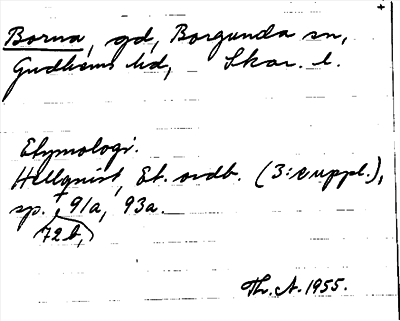 Borna, gd, Borgunda sn,
Gudhems hd, Skar. l.
Etymologi.
Hellquist, Et. ordb. (3:e uppl.),
sp. 91a, 93a.
72b,
Th. A. 1955.